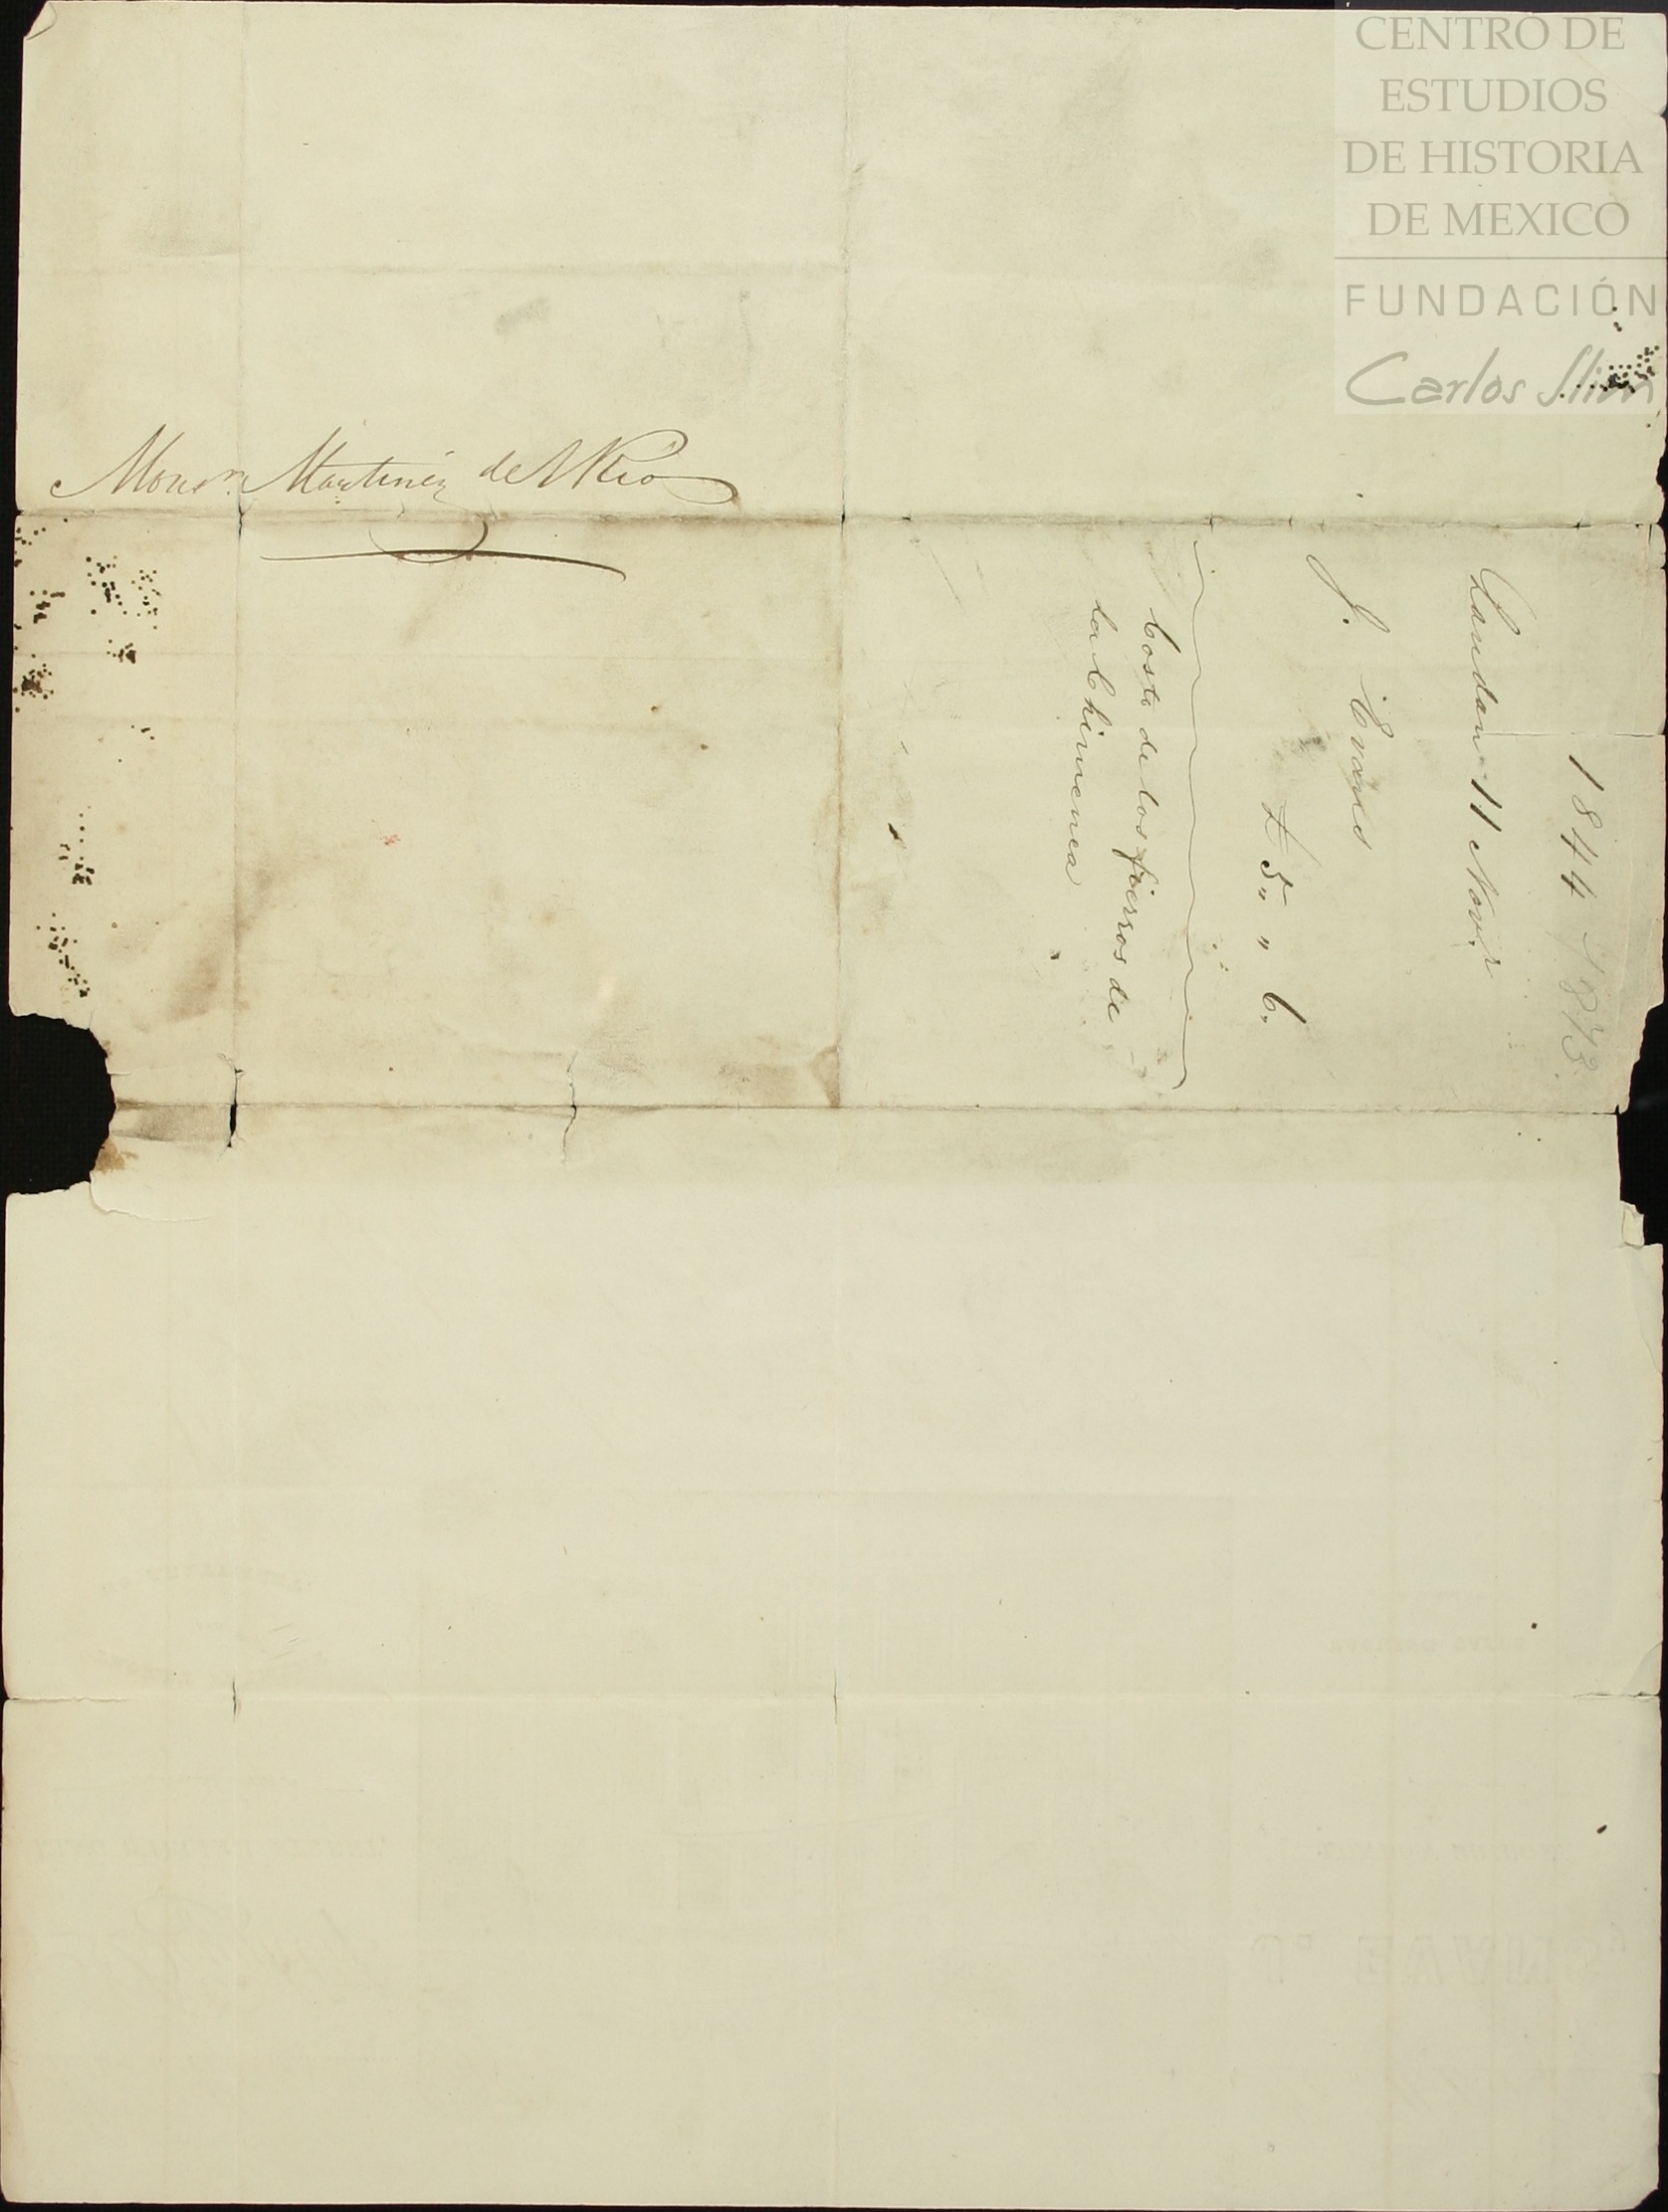 CENTRO DE
ESTUDIOS
DE HISTORIA
DE MEXICO
FUNDACIÓN
Carlos Slim
Monsr. Martinez del Rio
1844 1843.
London 11 Novr
J. Evans
£ 5 " " 6.
Costo de los fierros de
la Chimenea